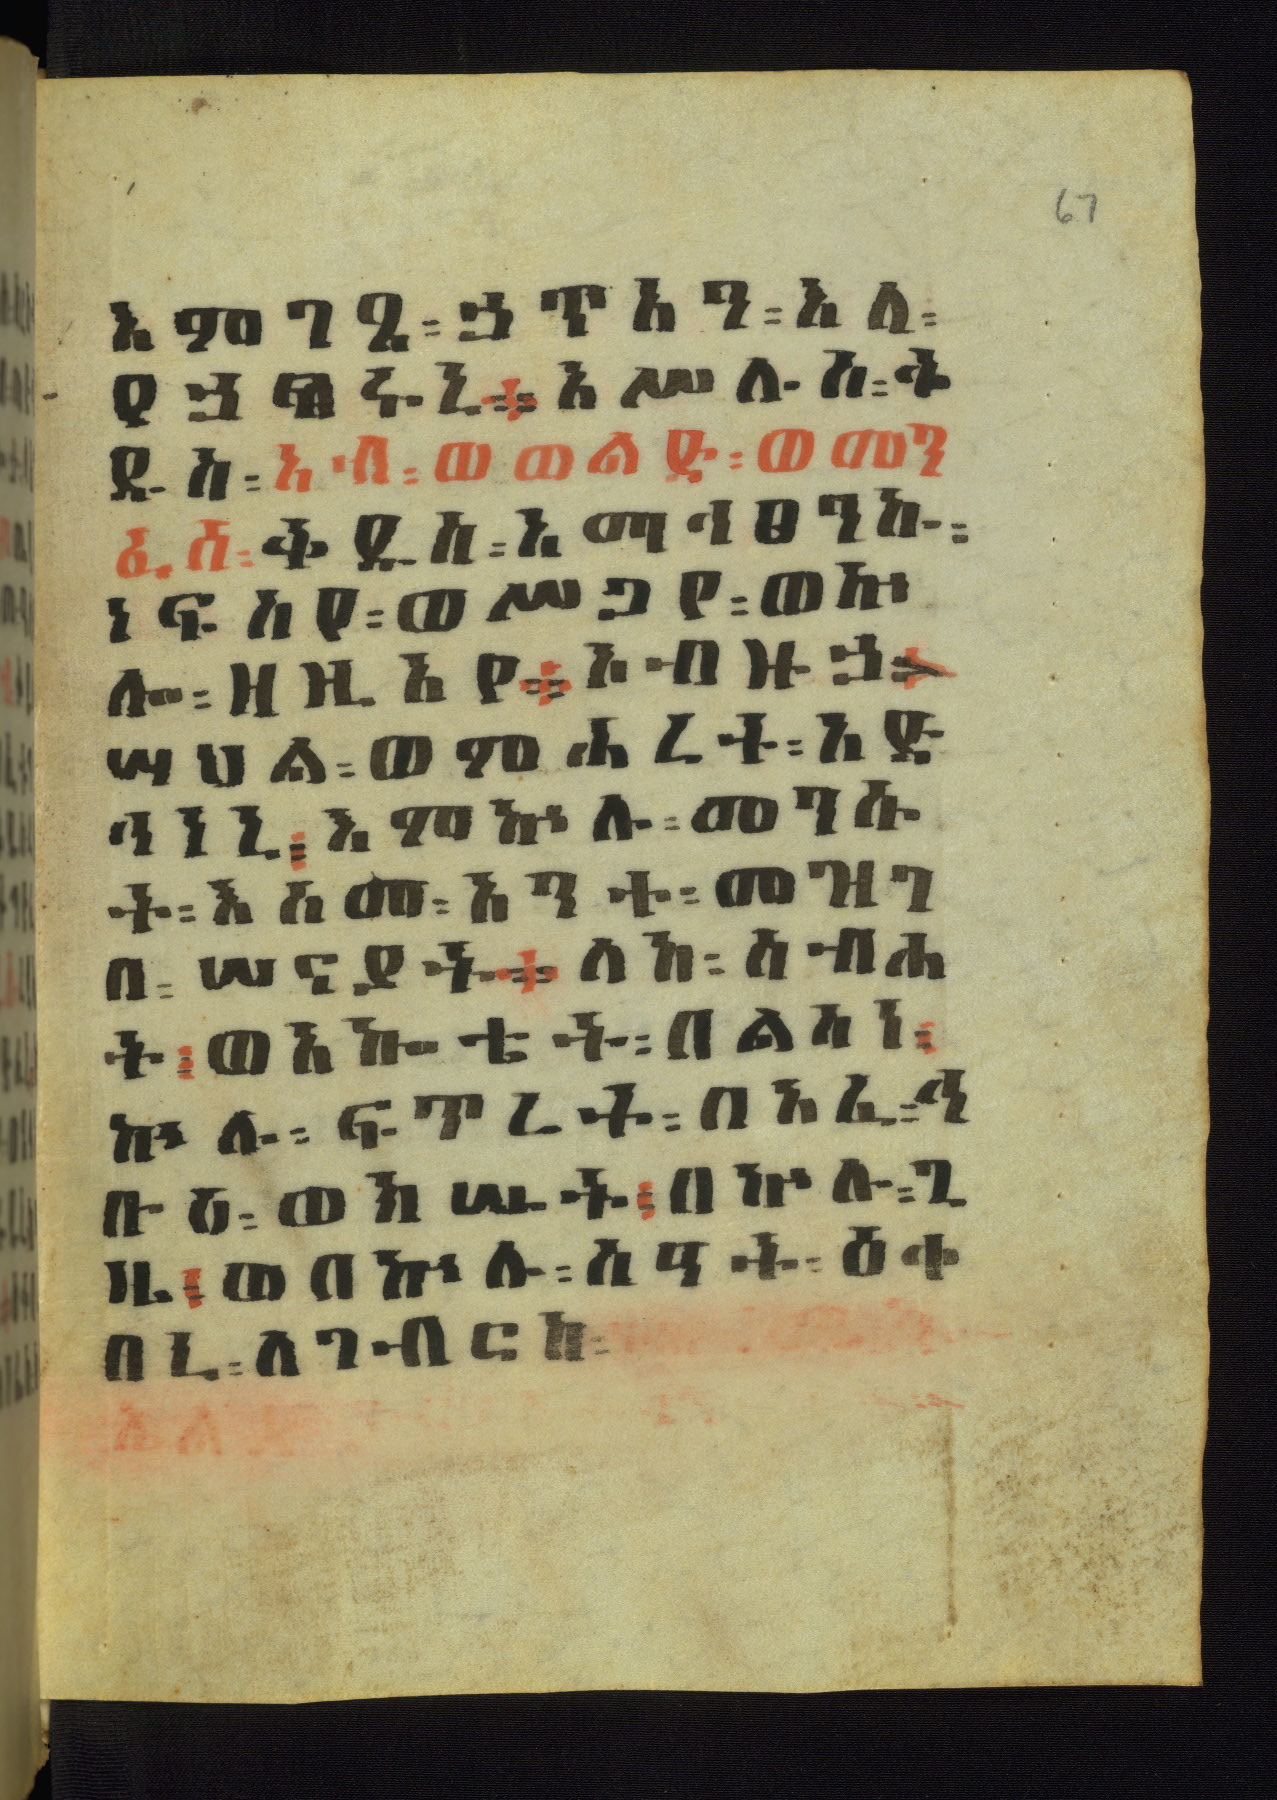 እምገጺ፡ ኃጥአን፡ እለ፡
የኃፃሩኒ። እሥሉስ፡ ቅ
ዱስ፡ አብ፡ ወወልድ፡ ወመን
ፈስ፡ ቅዱስ፡ እማኅፀንኩ፡
ነፍስየ፡ ወሥጋየ፡ ወኵ
ሎ፡ ዘዚአየ። እብዙኃ።
ሣህል፡ ወምሕረት፡ አድ
ኅነኒ፤ እምኵሉ፡ መንሱ
ት፡ እስመ፡ አንተ፡ መዝገ
በ፡ ሠናያት። ለከ፡ ስብሐ
ት፤ ወአኰቴት፡ በልሳነ፤
ኵሉ፡ ፍጥረት፡ በአፈ፡ ኅ
ቡዕ፡ ወክሡት፤ በኵሉ፡ ጊ
ዜ፤ ወበኵሉ፡ ሰዓት፡ ዕቀ
በኒ፡ ለገብርከ፡